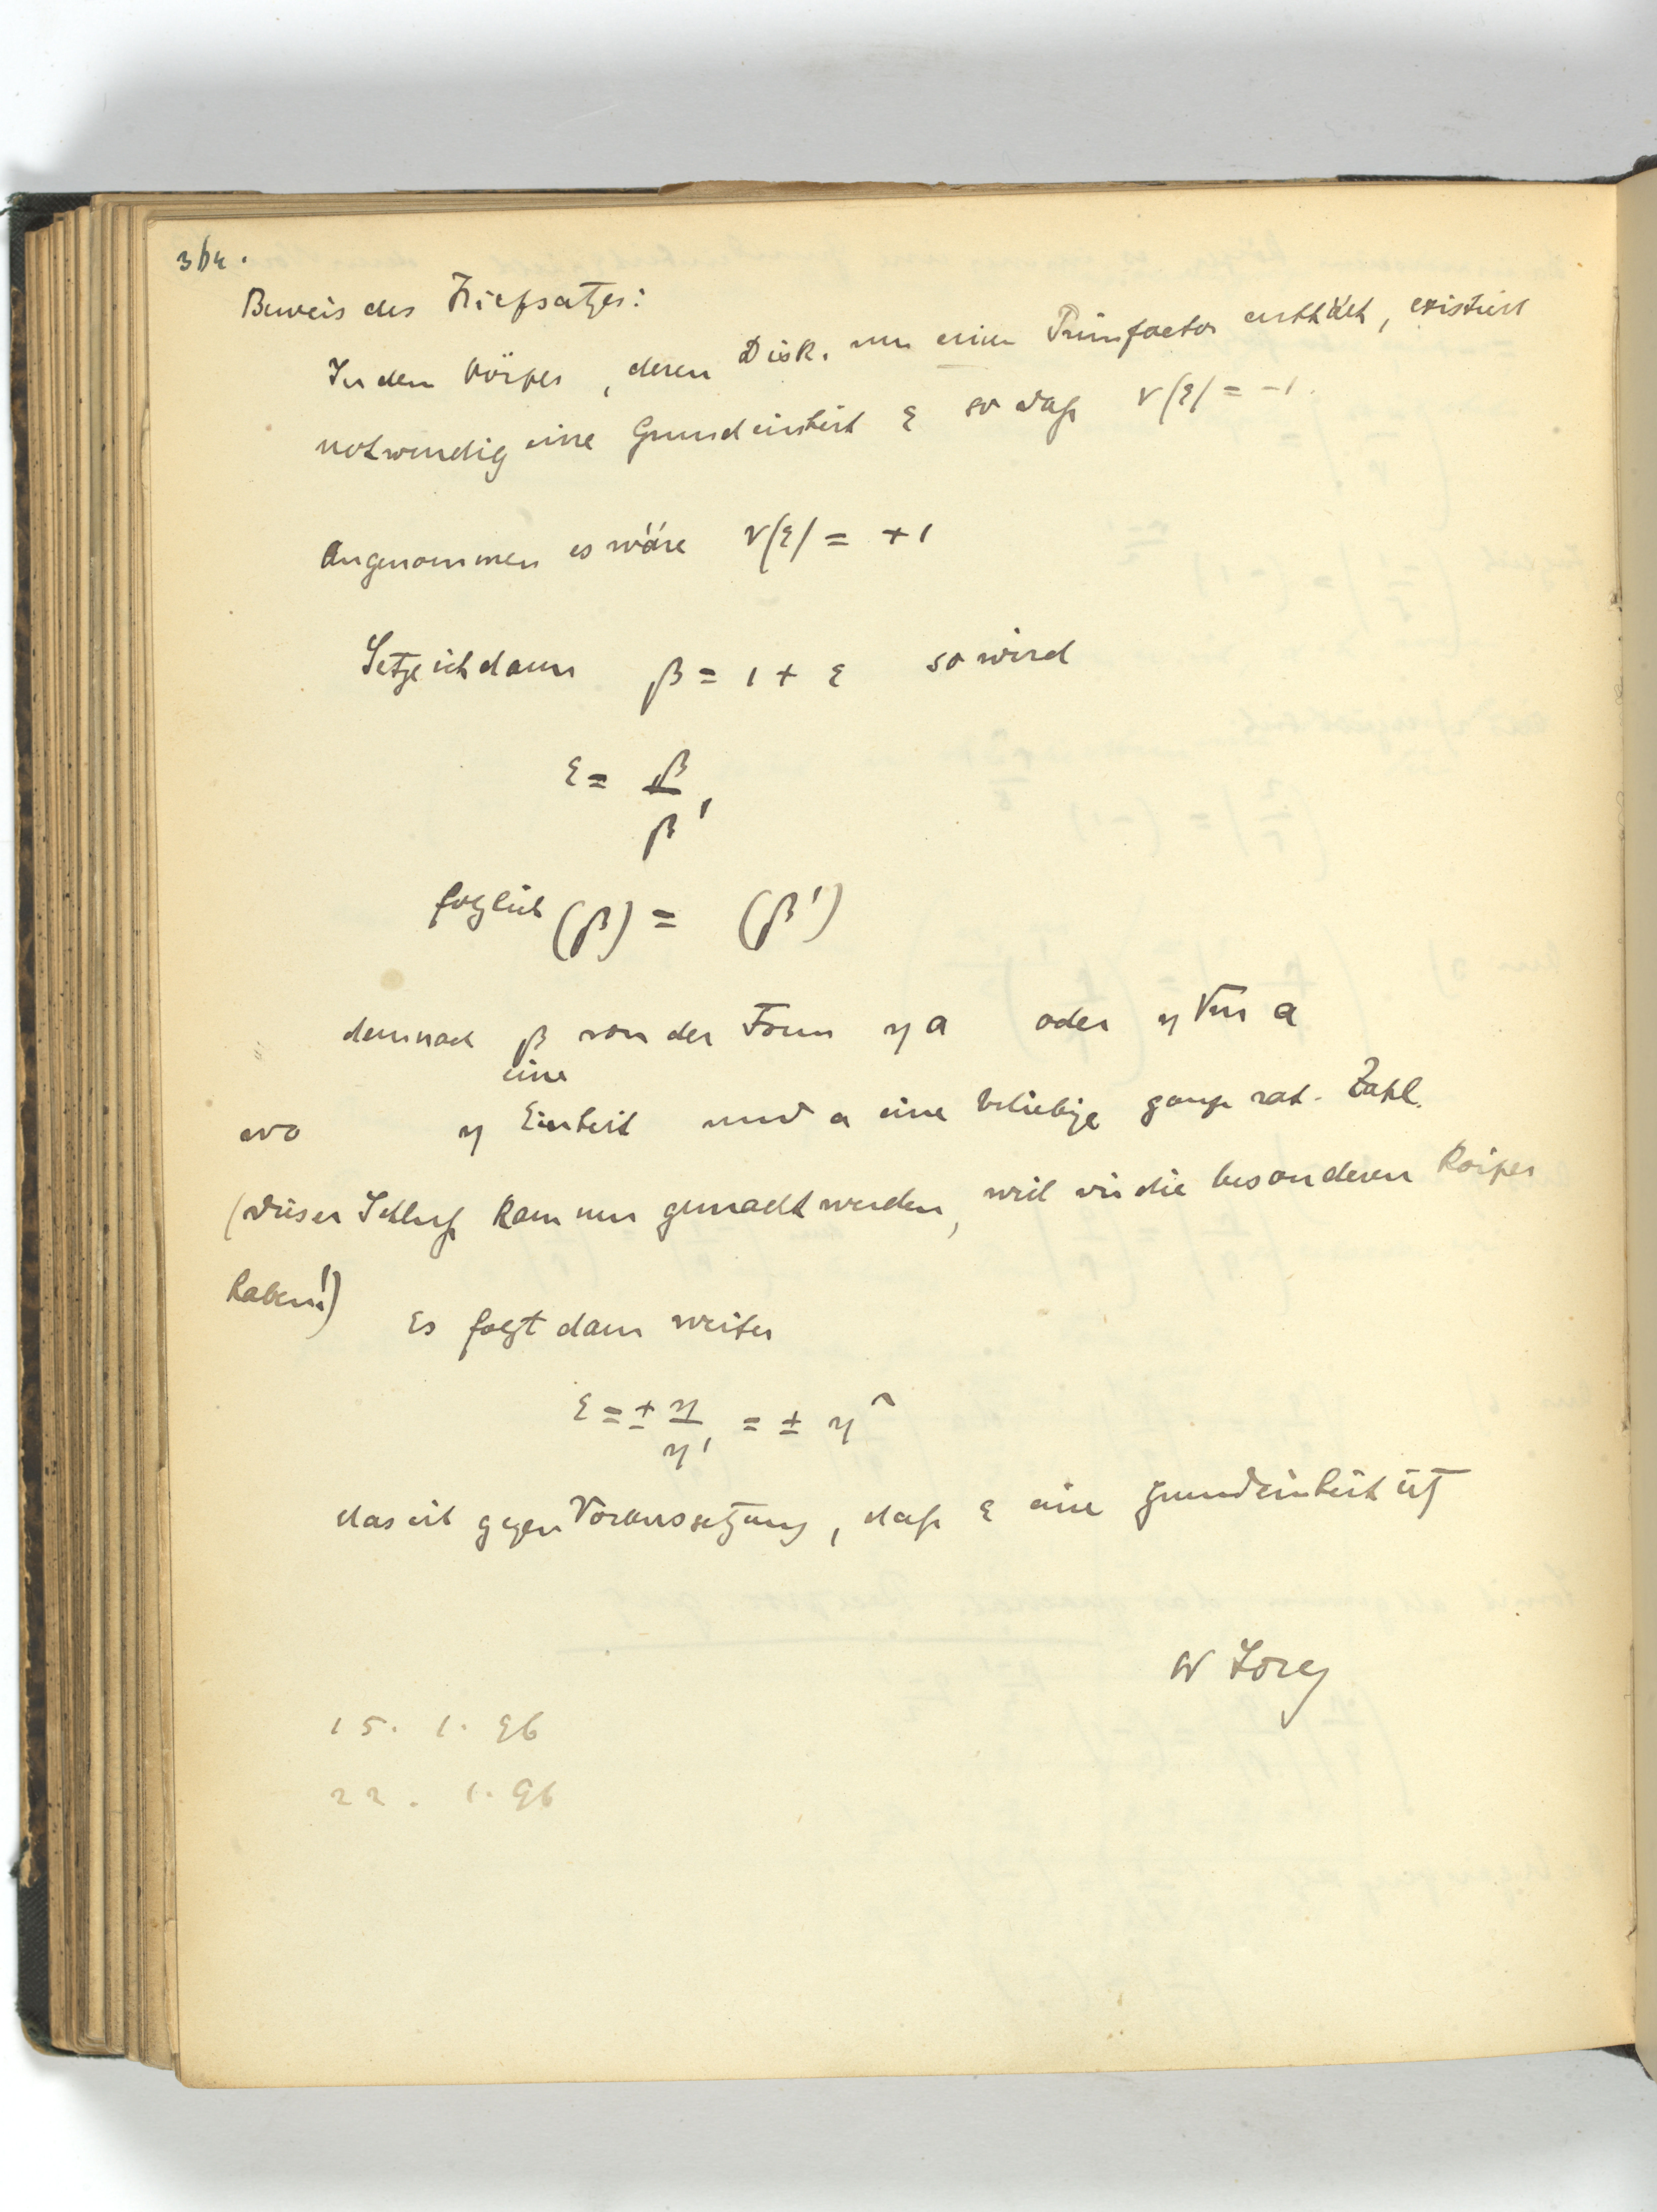 364.
Beweis des Hilfssatzes:
In dem Körper, deren Disk. nur einen Primfactor enthält, existiert
notwendig eine Grundeinheit ε so daß ν(ε) = -1.
Angenommen es wäre ν(ε) = +1
Setze ich dann β = 1 + ε so wird
ε = β/β'
folglich (β) = (β')
demnach β von der Form ηa oder η√m a
eine
wo η Einheit und a eine beliebige ganze rat. Zahl.
(dieser Schluß kann nur gemacht werden, weil wir die besonderen Körper
haben!)
Es folgt dann weiter
ε = ± η/η' = ± η²
das ist gegen Voraussetzung, daß ε eine Grundeinheit ist
W Lorey
15. 1. 96
22. 1. 96